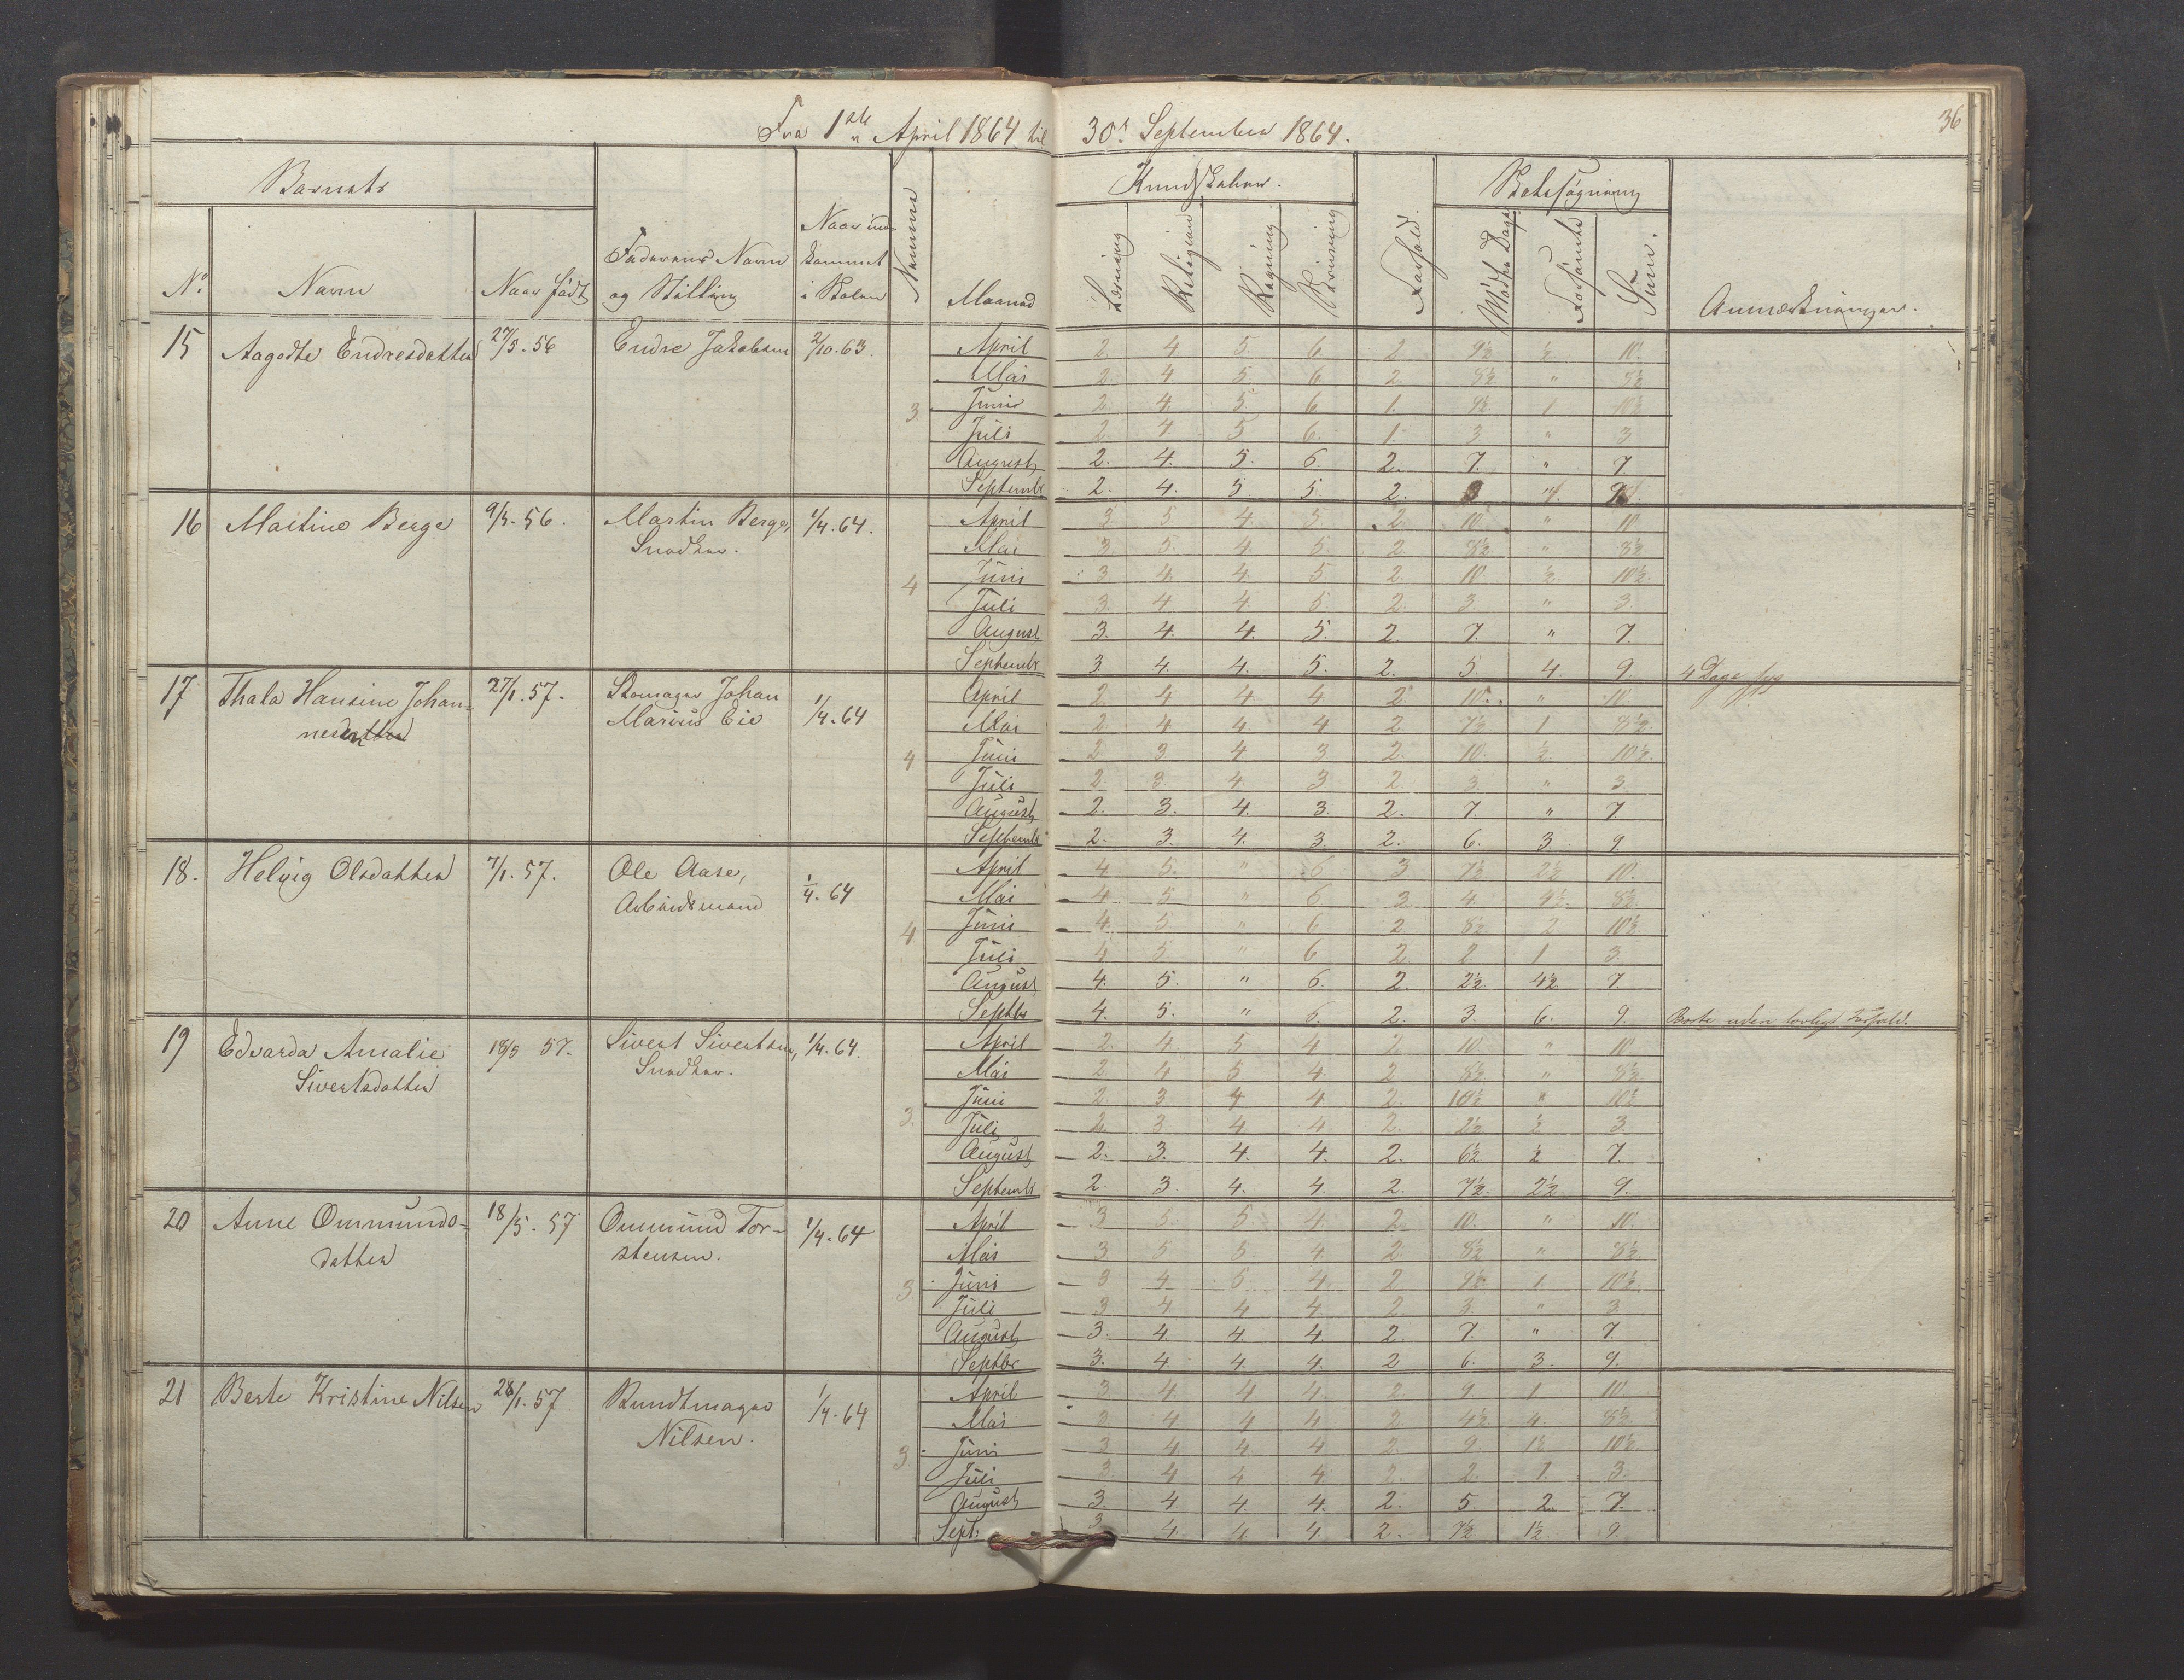 36
Fra 1ste April 1864 til 30te September 1864.
Barnets
Kundskaber.
Skolesøgning
No.
Navn
Naar født
Faderens Navn og Stilling
Naar indkommet i Skolen
Numer
Maaned
Læsning
Religion
Regning
Skrivning
Forhold.
Mødte Dage
Forsømte
Sum.
Anmærkninger.
15 Aagodte Endresdatter 27/5. 56 Endre Jakobsen 2/10. 63. 3
April 2. 4 5. 6 2 9½ ½ 10.
Mai 2. 4 5 6 2 8½ " 8½
Juni 2. 4. 5 6 1. 9½ 1 10½
Juli 2 4 5 6. 1. 3 " 3
August 2. 4. 5. 6. 2. 7. " 7.
Septembr 2. 4. 5. 5. 2. 9
16 Martine Berge 9/5. 56. Martin Berge, Snedker. 1/4. 64. 4
April 3 5 4 5 2 10 " 10
Mai 3 5. 4. 5. 2 8½ " 8½
Juni 3 4. 4. 5. 2. 10 ½ 10½.
Juli 3. 4 4. 5. 2. 3 " 3.
August 3. 4. 4. 5. 2. 7. " 7.
Septembr 3. 4. 4. 5. 2. 5. 4. 9. 4 Dage syg
17 Thala Hansine Johannesen 27/1. 57. Skomager Johan Marius Eie 1/4. 64 4
April 2. 4 4. 4 2 10. " 10
Mai 2 4. 4. 4 2 7½ 1 8½.
Juni 2 3 4 3 2. 10. ½. 10½.
Juli 2. 3. 4. 3 2 3. " 3.
August 2. 3. 4. 3. 2. 7. " 7
Septembr 2. 3. 4. 3. 2. 6. 3 9
18. Helvig Olsdatter 7/1. 57. Ole Aase, Arbeidsmand 1/4. 64 4
April 4 5. " 6 3 7½ 2½ 10.
Mai 4 5 " 6 3 4. 4½. 8½
Juni 4. 5. " 6 2 8½ 2 10½
Juli 4 5 " 6 2 2. 1 3.
August 4. 5. " 6. 2. 2½ 4½ 7.
Septbr 4. 5. " 6. 2. 3. 6. 9. Borte uden lovligt Forfald.
19 Edvarda Amalie Sivertsdatter 18/5 57. Sivert Sivertsen, Snedker. 1/4. 64. 3.
April 2. 4. 5 4 2 10 " 10
Mai 2. 4 5 4. 2 8½ " 8½
Juni 2. 3 4 4. 2. 10½ " 10½
Juli 2. 3. 4 4 2. 2½ ½ 3.
August 2. 3. 4. 4. 2. 6½ ½ 7.
Septembr 2. 3. 4. 4. 2. 7½ 2½ 9.
20 Anne Ommundsdatter 18/5. 57 Ommund Torstensen. 1/4. 64 3
April 3 5 5 4. 2 10. " 10.
Mai 3 5 5. 4. 2. 8½ " 8½
Juni 3 4. 5. 4. 2 9½ 1. 10½
Juli 3 4. 4 4. 2 3. " 3.
August 3. 4. 4. 4. 2 7. " 7.
Septbr 3. 4. 4. 4. 2 6. 3. 9.
21 Berte Kristine Nilsen 28/1. 57 Bundtmager Nilsen. 1/4. 64 3
April 3. 4. 4 4. 2. 9. 1 10
Mai 3. 4. 4 4. 2. 4½ 4. 8½
Juni 3 4. 4. 4 2 9. 1½ 10½
Juli 3 4 4 4 2 2. 1. 3.
August 3. 4. 4. 4. 2. 5. 2. 7.
Sept: 3 4. 4. 4. 2. 7½ 1½ 9.